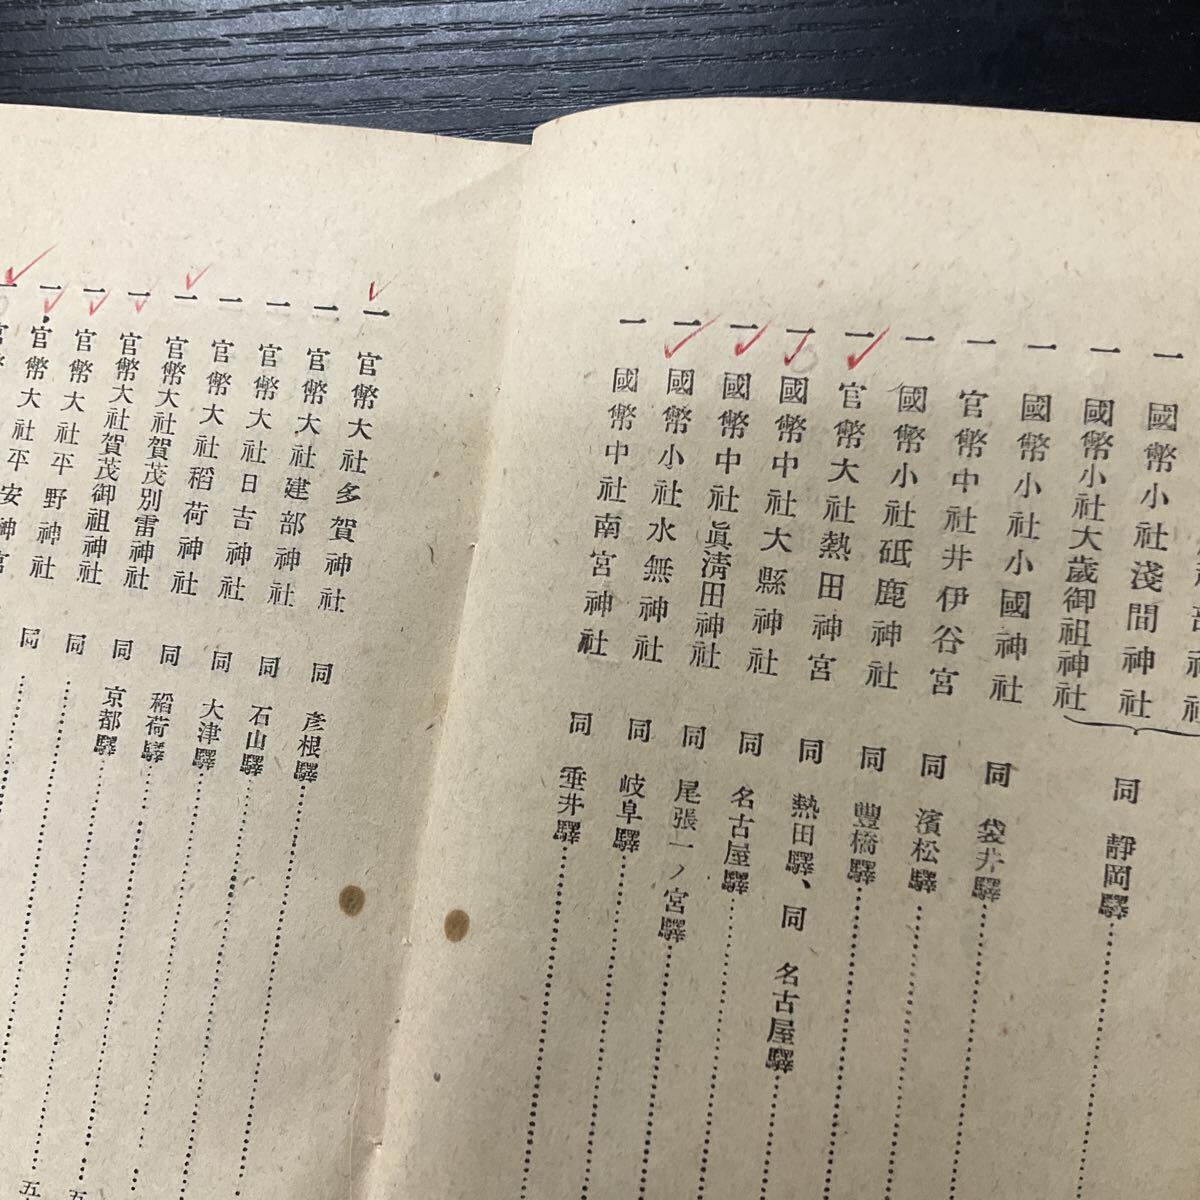 一 國幣小社淺間神社
一 國幣小社大歲御祖神社 同 靜岡驛
一 國幣小社小國神社 同 袋井驛
一 官幣中社井伊谷宮 同 濱松驛
一 國幣小社砥鹿神社 同 豐橋驛
一 官幣大社熱田神宮 同 熱田驛、同 名古屋驛
一 國幣中社大縣神社 同 名古屋驛
一 國幣中社眞淸田神社 同 尾張一ノ宮驛
一 國幣小社水無神社 同 岐阜驛
一 國幣中社南宮神社 同 垂井驛
一 官幣大社多賀神社 同 彥根驛
一 官幣大社建部神社 同 石山驛
一 官幣大社日吉神社 同 大津驛
一 官幣大社稻荷神社 同 稻荷驛
一 官幣大社賀茂別雷神社 同 京都驛
一 官幣大社賀茂御祖神社 同
一 官幣大社平野神社 同
一 官幣大社平安神宮